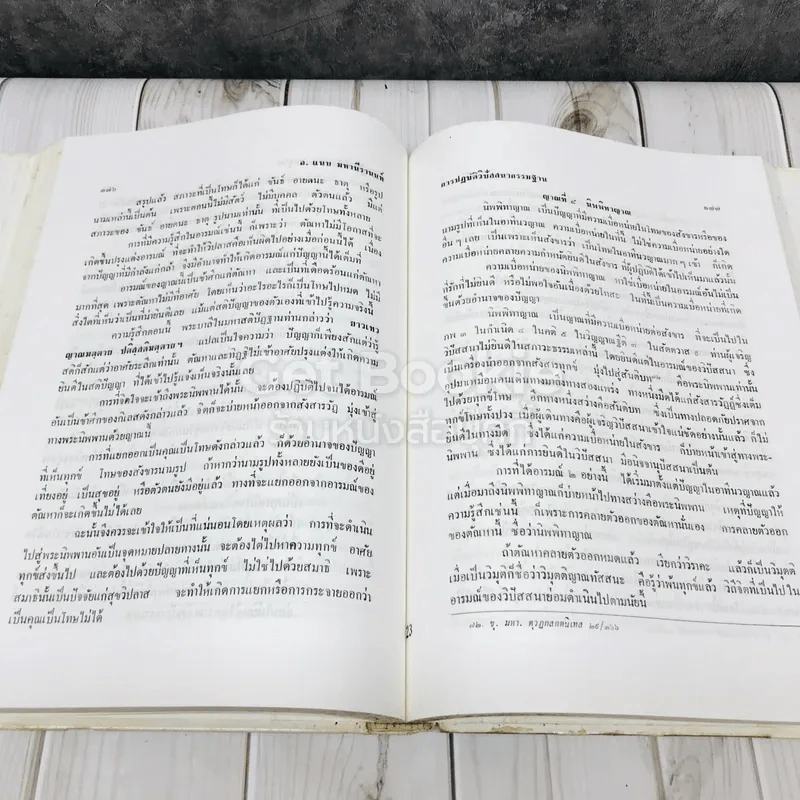 อ. แนบ มหานีรานนท์
๑๗๖
สรุปแล้ว สภาวะที่เป็นโทษก็ได้แก่ ขันธ์ อายตนะ ธาตุ หรือรูป
นามเหล่านี้เป็นต้น เพราะตอนนี้ไม่มีสัตว์ ไม่มีบุคคล ตัวตนแล้ว มีแต่
สภาวะของ ขันธ์ อายตนะ ธาตุ รูปนามเท่านั้น ที่เป็นไปด้วยโทษทั้งหลาย
การที่มีความรู้สึกในอารมณ์เช่นนี้ ก็เพราะว่า ตัณหาไม่มีโอกาสที่จะ
เกิดขึ้นปรุงแต่งอารมณ์ ที่จะทำให้วิปลาสคือเห็นผิดไปอย่างเมื่อก่อนนี้ได้ เนื่อง
จากปัญญาที่มีกำลังแก่กล้า จึงมีอำนาจทำให้เกิดอารมณ์แก่ปัญญานี้ได้เต็มที่
อารมณ์ของญาณนี้เป็นข้าศึกแก่ตัณหา และเป็นที่เดือดร้อนแก่ตัณหา
มากที่สุด เพราะตัณหาไม่มีที่อาศัย โดยเห็นว่าอะไรอะไรก็เป็นโทษไปหมด ไม่มี
สิ่งใดที่เห็นว่าเป็นที่น่ายินดีเลย แม้แต่สติปัญญาของตัวเองที่เข้าไปรู้ความจริงนี้
ความรู้สึกตอนนี้ พระบาลีในมหาสติปัฏฐานท่านกล่าวว่า ยาวเทว
ญาณมตฺตาย ปติสฺสติมตฺตาย ฯ แปลเป็นใจความว่า ปัญญาก็เพียงสักแต่ว่ารู้
สติก็สักแต่ว่าอาศัยระลึกเท่านั้น ตัณหาและทิฏฐิไม่เข้าอาศัยปรุงแต่งให้เกิดความ
ยินดีในสติปัญญา ที่ได้เข้าไปรู้แจ้งเห็นจริงนั้นเลย
การที่จิตใจจะเข้าถึงพระนิพพานได้นั้น จะต้องปฏิบัติไปจนได้อารมณ์
อันเป็นข้าศึกของกิเลสดังกล่าวแล้ว จิตก็จะบ่ายหน้าออกจากสังสารวัฏ มุ่งเข้าสู่
ทางพระนิพพานด้วยญาณนี้
การที่แยกออกเป็นคุณเป็นโทษดังกล่าวแล้ว ก็ด้วยอำนาจของปัญญา
ที่เห็นทุกข์ โทษของสังขารนามรูป ถ้าหากว่านามรูปทั้งหลายยังเป็นของดีอยู่
เที่ยงอยู่ เป็นสุขอยู่ หรือตัวตนยังมีอยู่แล้ว ทางที่จะแยกออกจากอารมณ์ของ
ตัณหาก็จะเกิดขึ้นไม่ได้เลย
ฉะนั้นจึงควรจะเข้าใจให้เป็นที่แน่นอนโดยเหตุผลว่า การที่จะดำเนิน
ไปสู่พระนิพพานอันเป็นจุดหมายปลายทางนั้น จะต้องไต่ไปหาความทุกข์ อาศัย
ทุกข์ส่งขึ้นไป และต้องไปด้วยปัญญาที่เห็นทุกข์ ไม่ใช่ไปด้วยสมาธิ เพราะ
สมาธินั้นเป็นปัจจัยแก่สุขวิปลาส จะทำให้เกิดการแยกหรือการกระจายออกว่า
เป็นคุณเป็นโทษไม่ได้
23
การปฏิบัติวิปัสสนากรรมฐาน
๑๗๗
ญาณที่ ๘ นิพพิทาญาณ
นิพพิทาญาณ เป็นปัญญาที่มีความเบื่อหน่ายในโทษของสังขารหรือของ
นามรูปที่เห็นในอาทีนวญาณ ความเบื่อหน่ายในที่นี้ ไม่ใช่ความเบื่อหน่ายอย่างใด
อื่นๆ เลย เป็นเพราะเห็นสังขารว่า เป็นโทษในอาทีนวญาณมากๆ เข้า ก็เกิด
ความเบื่อหน่ายคลายความกำหนัดยินดีในสังขาร ที่ผู้ปฏิบัติได้เข้าไปเห็นมาแล้วนั้น
ความเบื่อหน่ายของนิพพิทาญาณ หาใช่เบื่อหน่ายในอารมณ์อันไม่เป็น
ที่รักที่ไม่ยินดี หรือไม่พอใจอันเนื่องด้วยโทสะ ในที่นี้เป็นความเบื่อหน่ายที่เกิด
ขึ้นด้วยอำนาจของปัญญา
นิพพิทาญาณ เป็นญาณที่มีความเบื่อหน่ายต่อสังขาร ที่จะเป็นไปใน
ภพ ๓ ในกำเนิด ๔ ในคติ ๕ ในวิญญาณฐิติ ๗ ในสัตตวาส ๙ ท่านผู้เจริญ
วิปัสสนาไม่ยินดีในสภาวะธรรมเหล่านี้ โดยยินดีแต่ในอารมณ์ของวิปัสสนา ซึ่ง
เป็นเครื่องนำออกจากสังสารทุกข์ มุ่งไปสู่สันติบท คือพระนิพพานเท่านั้น
เปรียบเหมือนคนเดินทางมาถึงทางสองแพร่ง ทางหนึ่งมืดได้แก่สังสารวัฏฏ์ซึ่งเต็ม
ไปด้วยทุกข์โทษ อีกทางหนึ่งสว่างคือสันติบท ซึ่งเป็นทางปลอดภัยปราศจาก
ทุกข์โทษทั้งปวง เมื่อผู้เดินทางคือผู้เจริญวิปัสสนาเข้าใจแน่ชัดอย่างนั้นแล้ว ก็ไม่
ยินดีในทางมืด ซึ่งได้แก่ความเบื่อหน่ายในสังขาร ก็บ่ายหน้าเข้าสู่ทางพระ-
นิพพาน ซึ่งได้แก่การยินดีในวิปัสสนา มีอนิจจานุปัสสนาเป็นต้น
การที่ได้อารมณ์ ๒ อย่างนี้ ได้เริ่มมาตั้งแต่ปัญญาในอาทีนวญาณแล้ว
แต่เมื่อมาถึงนิพพิทาญาณก็บ่ายหน้าไปทางสว่างคือพระนิพพาน เหตุที่ปัญญาให้
ความรู้สึกเช่นนี้ ก็เพราะการคลายตัวออกของตัณหานั่นเอง การคลายตัวออก
ของตัณหานี้ ชื่อว่านิพพิทาญาณ
ถ้าตัณหาคลายตัวออกหมดแล้ว เรียกว่าวิราคะ แล้วก็เป็นวิมุตติ
เมื่อเป็นวิมุตติก็ชื่อว่าวิมุตติญาณทัสสนะ คือรู้ว่าพ้นทุกข์แล้ว วิถีจิตที่เป็นไปใน
อารมณ์ของวิปัสสนาย่อมดำเนินไปตามนัยนี้
๗๒. ขุ. มหา. ตุวฏกสุตตนิเทส ๒๙/๓๖๖
Get Book
ร้านหนังสือเก่า